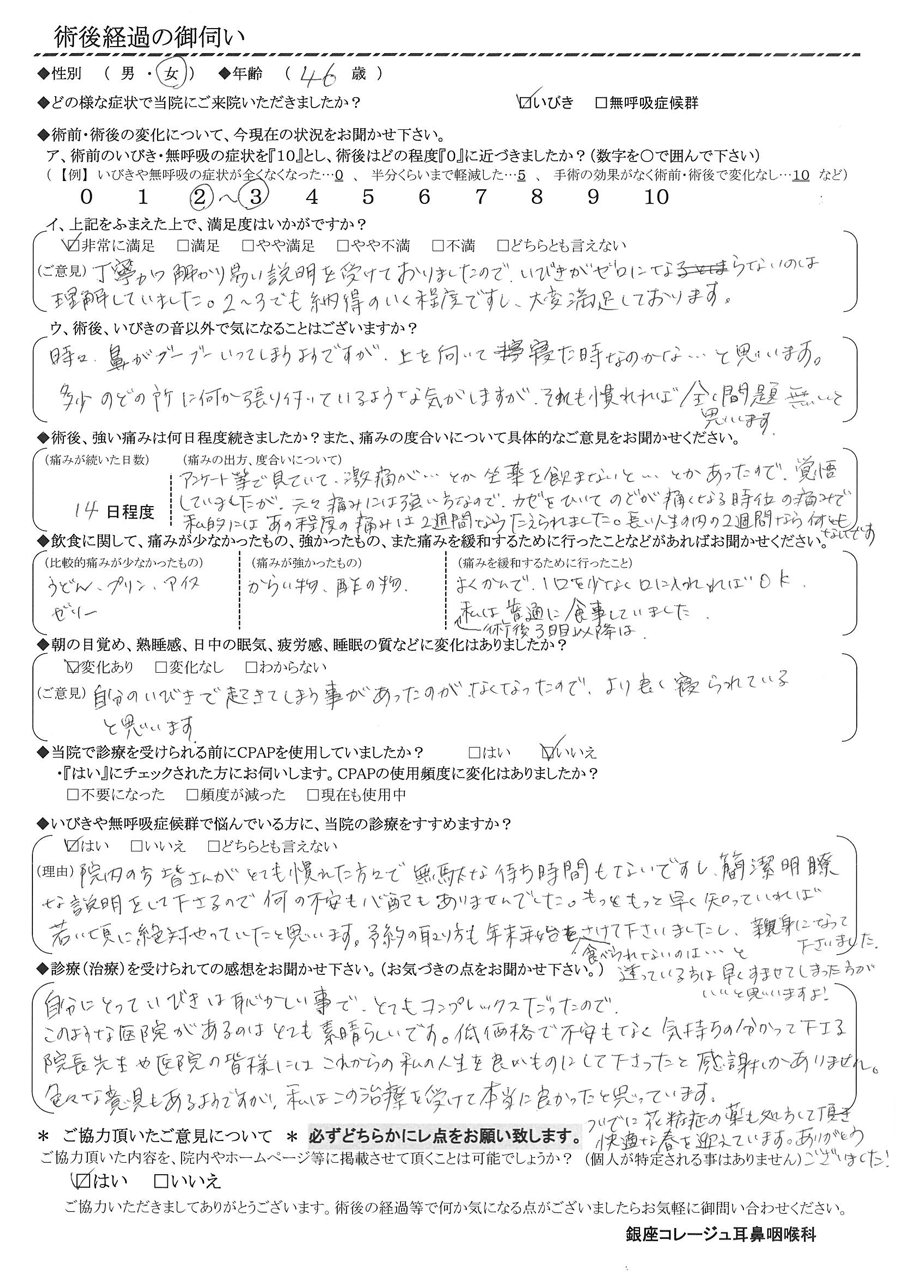 術後経過の御伺い
◆性別 ( 男 ・ 女 ) ◆年齢 ( 46 歳 )
◆どの様な症状で当院にご来院いただきましたか? ☑いびき □無呼吸症候群
◆術前・術後の変化について、今現在の状況をお聞かせ下さい。
ア、術前のいびき・無呼吸の症状を『10』とし、術後はどの程度『0』に近づきましたか?(数字を○で囲んで下さい)
(【例】いびきや無呼吸の症状が全くなくなった…0 、 半分くらいまで軽減した…5 、 手術の効果がなく術前・術後で変化なし…10 など)
0 1 2~3 4 5 6 7 8 9 10
イ、上記をふまえた上で、満足度はいかがですか?
☑非常に満足 □満足 □やや満足 □やや不満 □不満 □どちらとも言えない
(ご意見) 丁寧かつ解かり易い説明を受けておりましたので、いびきがゼロにならないのは
理解していました。2~3でも納得のいく程度ですし、大変満足しております。
ウ、術後、いびきの音以外で気になることはございますか?
時々、鼻がブーブーいってしまうようですが、上を向いて寝た時なのかな…と思います。
多少のどの所に何か張り付いているような気がしますが、それも慣れれば全く問題無いと
思います。
◆術後、強い痛みは何日程度続きましたか?また、痛みの度合いについて具体的なご意見をお聞かせください。
(痛みが続いた日数) (痛みの出方、度合いについて)
アンケート等で見ていて、激痛が…とか坐薬を飲まないと…とかあったので、覚悟
していましたが、元々痛みには強い方なので、カゼをひいてのどが痛くなる時位の痛みで
14 日程度 私的にはあの程度の痛みは2週間ならたえられました。長い人生の内の2週間なら何ともないです
◆飲食に関して、痛みが少なかったもの、強かったもの、また痛みを緩和するために行ったことなどがあればお聞かせください。
(比較的痛みが少なかったもの) (痛みが強かったもの) (痛みを緩和するために行ったこと)
うどん、プリン、アイス からい物、酢の物、 よくかんで、1口を少なく口に入れれればOK.
ゼリー 私は普通に食事していました
術後3日目以降は、
◆朝の目覚め、熟睡感、日中の眠気、疲労感、睡眠の質などに変化はありましたか?
☑変化あり □変化なし □わからない
(ご意見) 自分のいびきで起きてしまう事があったのがなくなったので、より良く寝られている
と思います
◆当院で診療を受けられる前にCPAPを使用していましたか? □はい ☑いいえ
・『はい』にチェックされた方にお伺いします。CPAPの使用頻度に変化はありましたか?
□不要になった □頻度が減った □現在も使用中
◆いびきや無呼吸症候群で悩んでいる方に、当院の診療をすすめますか?
☑はい □いいえ □どちらとも言えない
(理由) 院内の方皆さんがとても慣れた方々で無駄な待ち時間もないですし、簡潔明瞭
な説明をして下さるので何の不安も心配もありませんでした。もっともっと早く知っていれば
若い頃に絶対やっていたと思います。予約の取り方も年末年始をさけて下さいましたし、親身になって
下さいました。
食べられないのは…と
◆診療(治療)を受けられての感想をお聞かせ下さい。(お気づきの点をお聞かせ下さい。) 迷っている方は早くすませてしまった方が
いいと思いますよ!
自分にとっていびきは恥かしい事で、とてもコンプレックスだったので
このような医院があるのはとても素晴らしいです。低価格で不安もなく気持ちの分かって下さる
院長先生や医院の皆様にはこれからの私の人生を良いものにして下さったと感謝しかありません。
色々な意見もあるようですが、私はこの治療を受けて本当に良かったと思っています。
ついでに花粉症の薬も処方して頂き
* ご協力頂いたご意見について * 必ずどちらかにレ点をお願い致します。 快適な春を迎えています。ありがとう
ございました!
ご協力頂いた内容を、院内やホームページ等に掲載させて頂くことは可能でしょうか? (個人が特定される事はありません)
☑はい □いいえ
ご協力いただきましてありがとうございます。術後の経過等で何か気になる点がございましたらお気軽に御問い合わせください。
銀座コレージュ耳鼻咽喉科